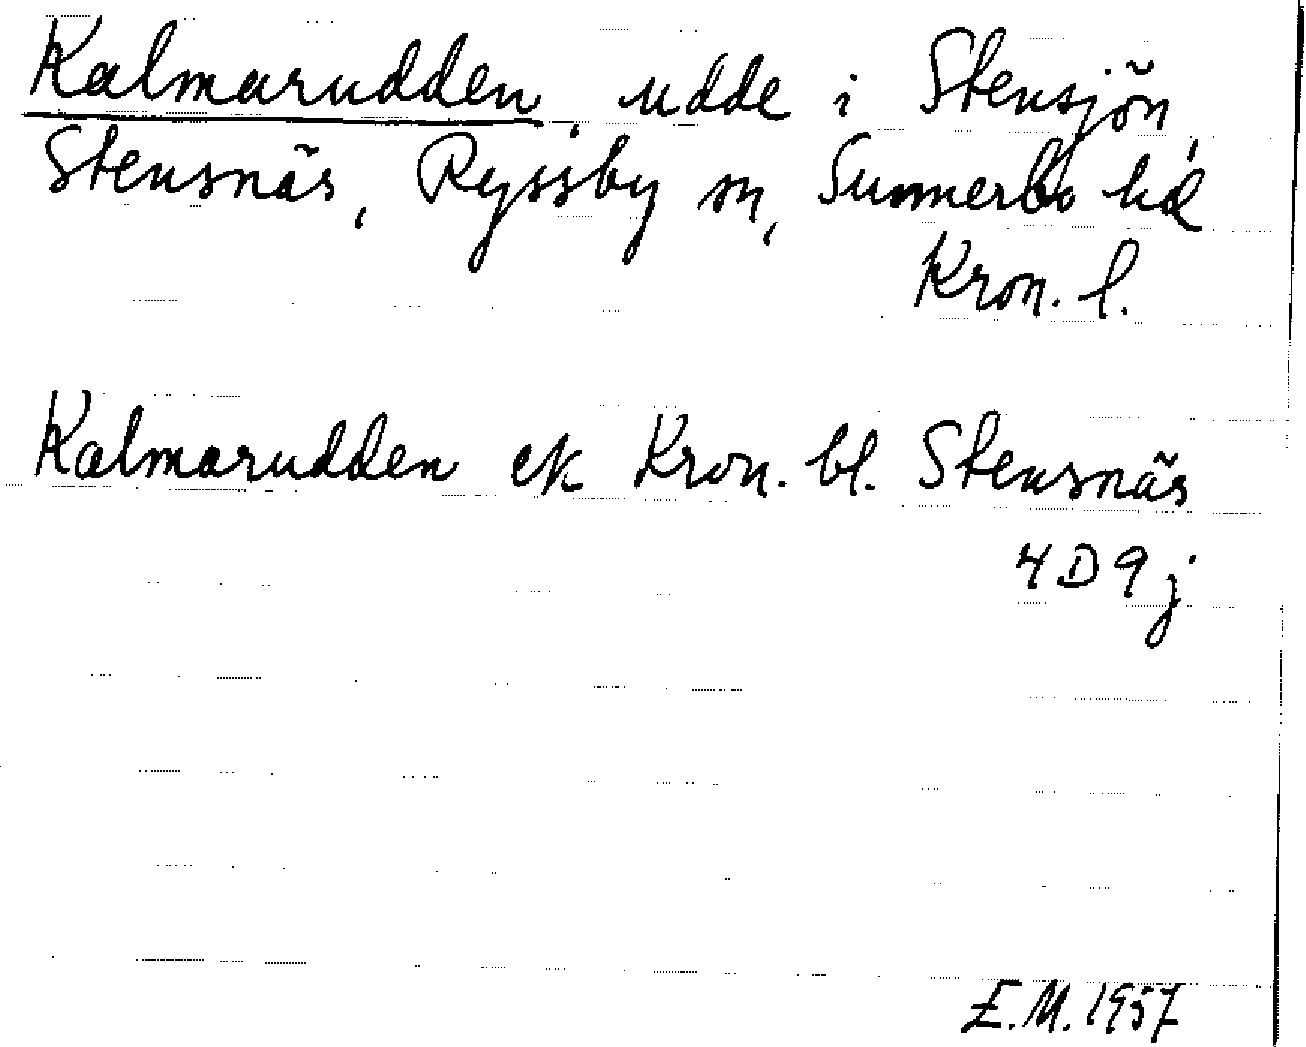 Kalmarudden, udde i Stensjön,
Stensnäs, Ryssby sn, Sunnerbo hd
Kron. l.
Kalmarudden ek Kron. bl. Stensnäs
4D9j
E.M. 1957